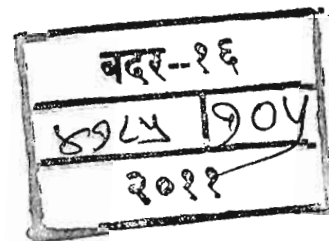 बदर--१६
४७८५ १०५
२०११